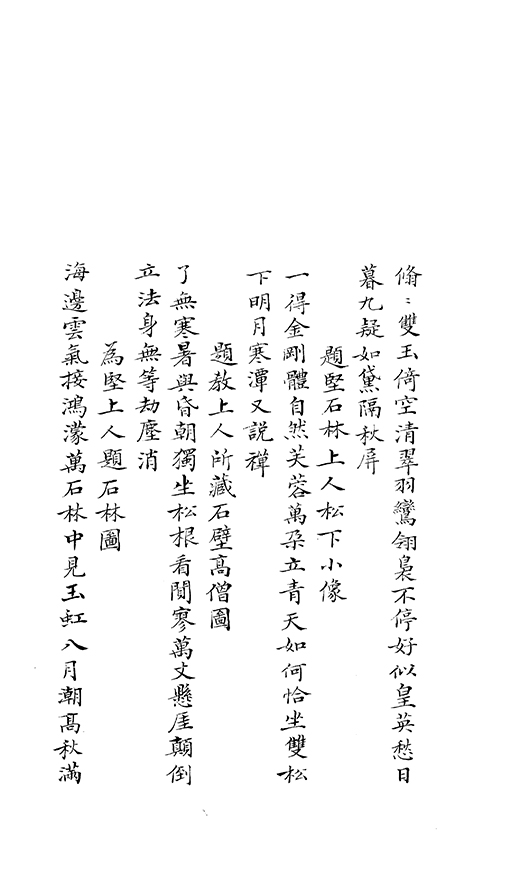 翛〻雙玉倚空清翠羽鸞翎裊不停好似皇英愁日
暮九疑如黛隔秋屏
題堅石林上人松下小像
一得金剛體自然芙蓉萬朶立青天如何恰坐雙松
下明月寒潭又說禪
題敎上人所藏石壁高僧圖
了無寒暑與昏朝獨坐松根看閴寥萬丈懸厓顛倒
立法身無等劫塵消
為堅上人題石林圖
海邊雲氣接鴻濛萬石林中見玉虹八月潮高秋滿